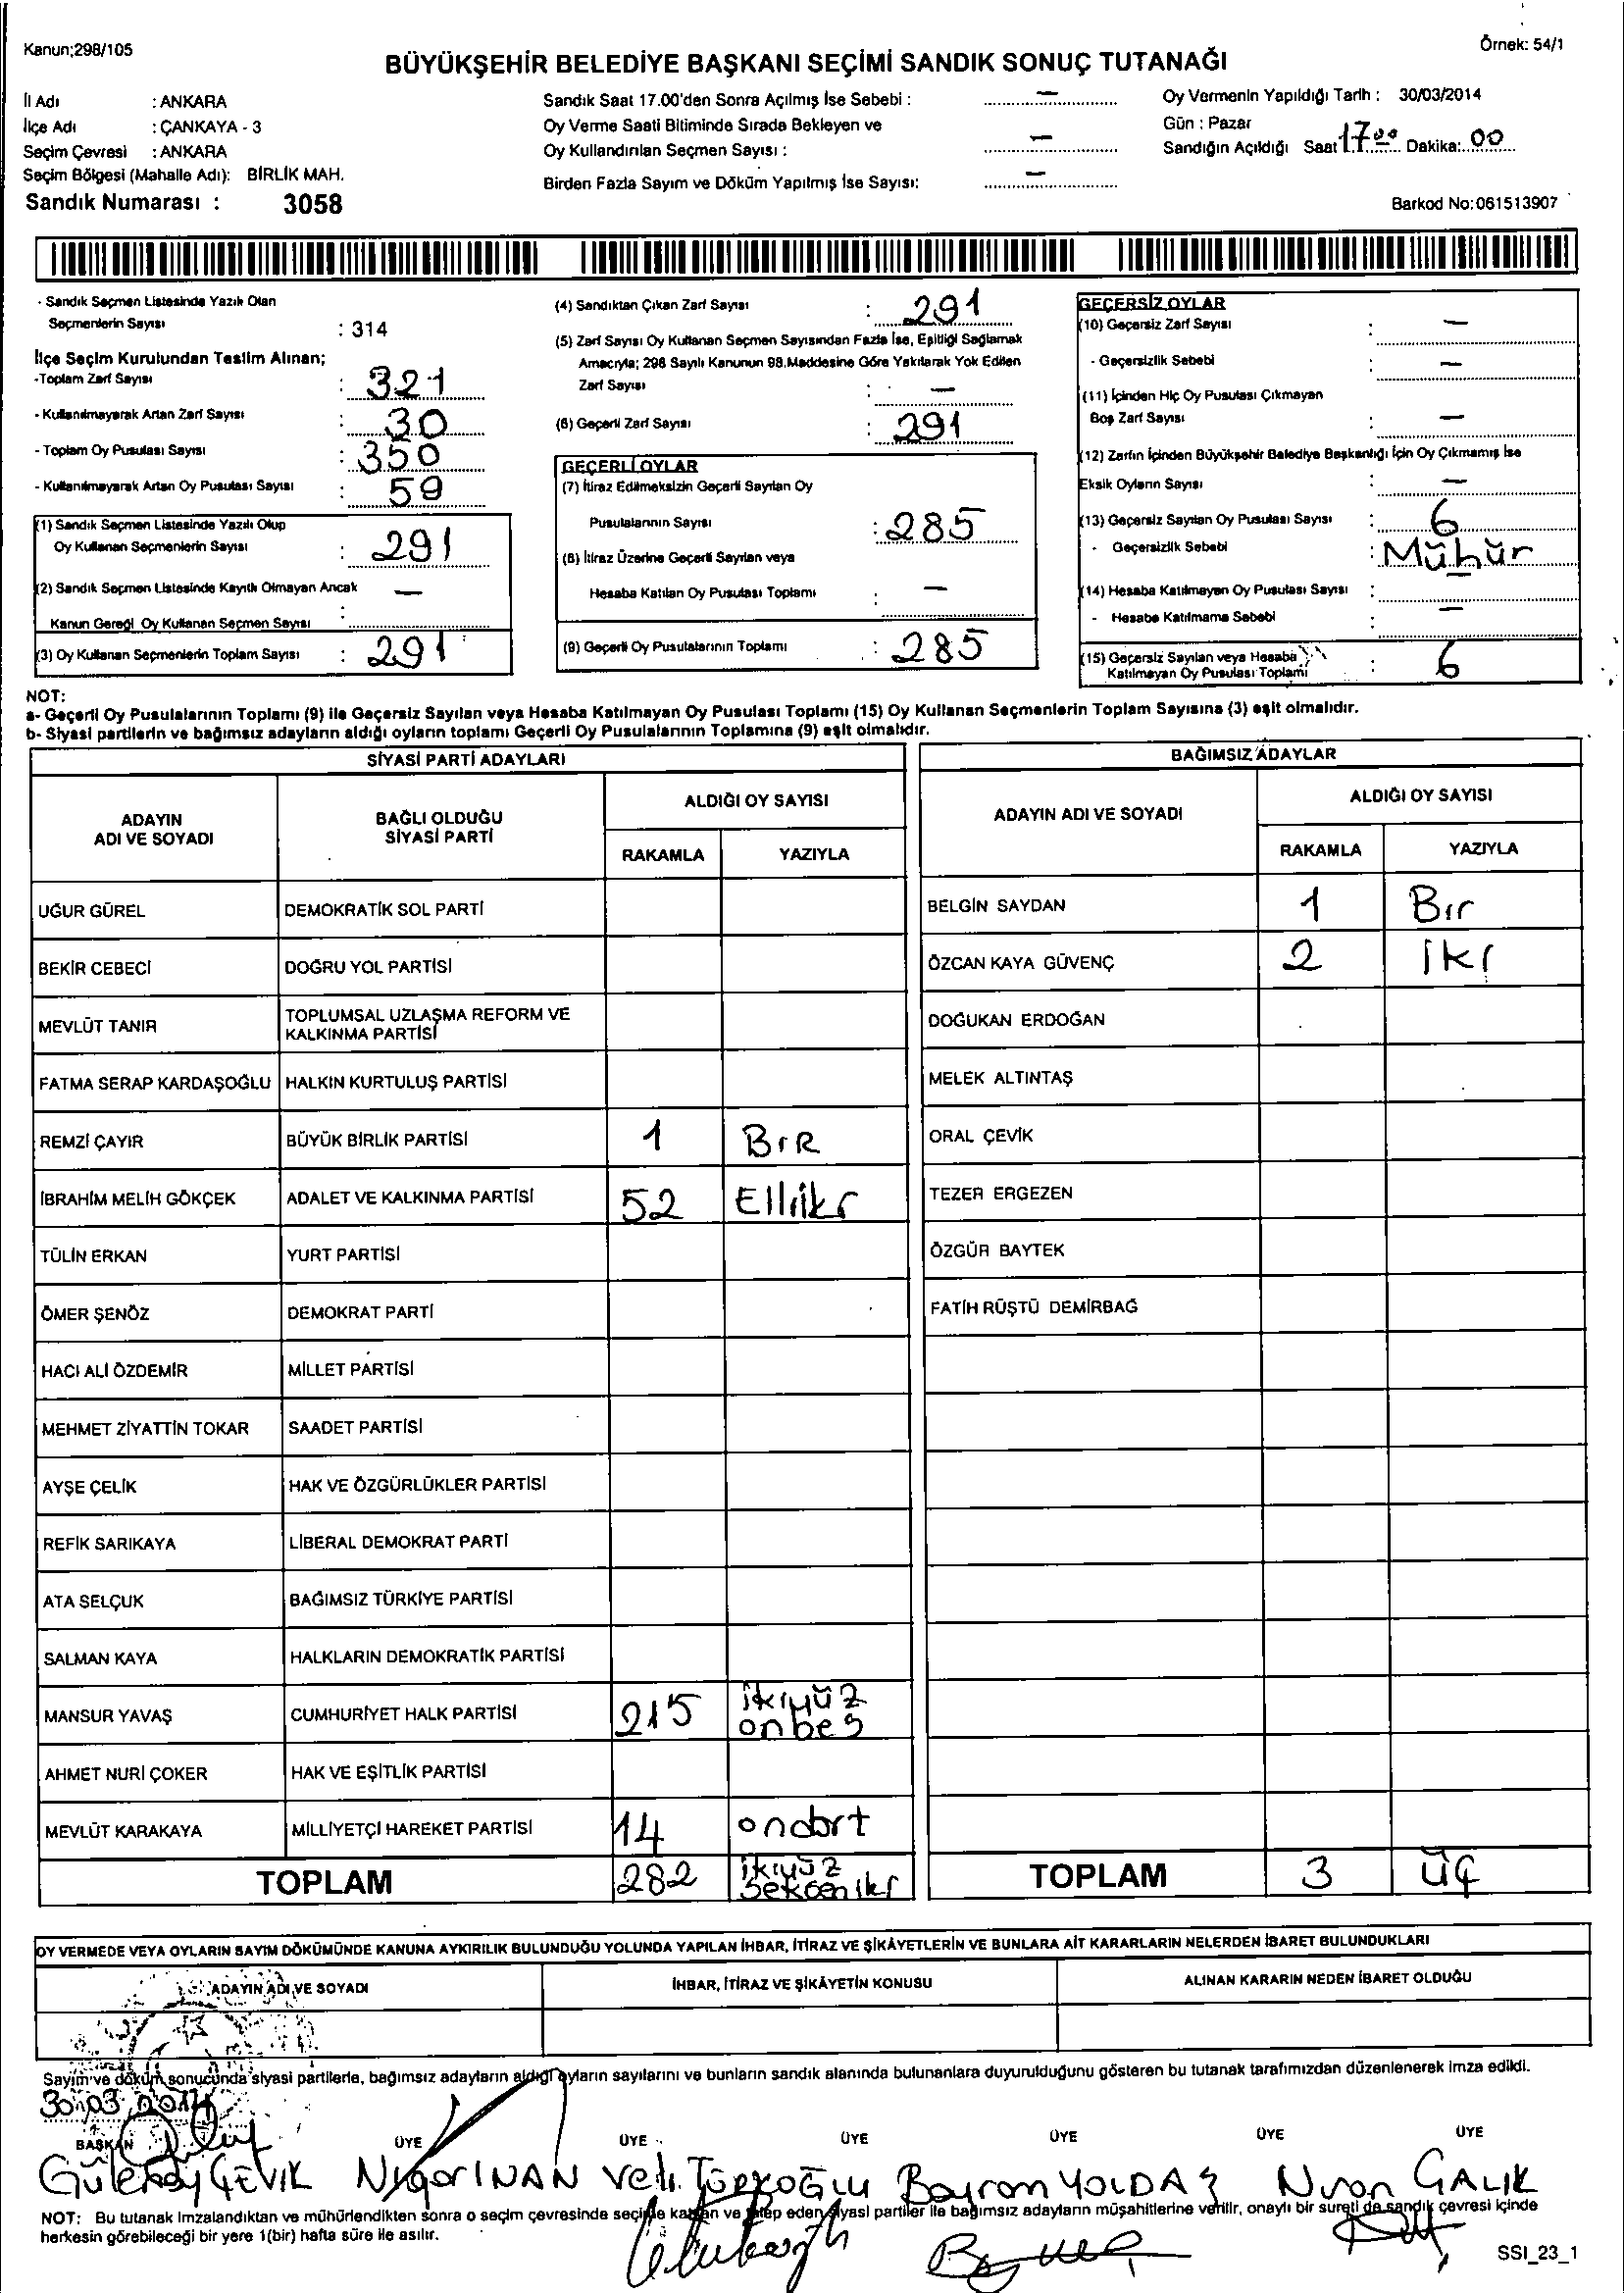 Kanun;298/105
Örnek: 54/1
BÜYÜKŞEHİR BELEDİYE BAŞKANI SEÇİMİ SANDIK SONUÇ TUTANAĞI
İl Adı : ANKARA
İlçe Adı : ÇANKAYA - 3
Seçim Çevresi : ANKARA
Seçim Bölgesi (Mahalle Adı): BİRLİK MAH.
Sandık Numarası : 3058
Sandık Saat 17.00'den Sonra Açılmış İse Sebebi : —
Oy Verme Saati Bitiminde Sırada Bekleyen ve
Oy Kullandırılan Seçmen Sayısı : —
Birden Fazla Sayım ve Döküm Yapılmış İse Sayısı: —
Oy Vermenin Yapıldığı Tarih : 30/03/2014
Gün : Pazar
Sandığın Açıldığı Saat 17.00 Dakika: 00
Barkod No:061513907
- Sandık Seçmen Listesinde Yazılı Olan
Seçmenlerin Sayısı : 314
İlçe Seçim Kurulundan Teslim Alınan;
-Toplam Zarf Sayısı : 321
- Kullanılmayarak Artan Zarf Sayısı : 30
- Toplam Oy Pusulası Sayısı : 350
- Kullanılmayarak Artan Oy Pusulası Sayısı : 59
(1) Sandık Seçmen Listesinde Yazılı Olup
Oy Kullanan Seçmenlerin Sayısı : 291
(2) Sandık Seçmen Listesinde Kayıtlı Olmayan Ancak
Kanun Gereği Oy Kullanan Seçmen Sayısı : —
(3) Oy Kullanan Seçmenlerin Toplam Sayısı : 291
(4) Sandıktan Çıkan Zarf Sayısı : 291
(5) Zarf Sayısı Oy Kullanan Seçmen Sayısından Fazla İse, Eşitliği Sağlamak
Amacıyla; 298 Sayılı Kanunun 98.Maddesine Göre Yakılarak Yok Edilen
Zarf Sayısı : —
(6) Geçerli Zarf Sayısı : 291
GEÇERLİ OYLAR
(7) İtiraz Edilmeksizin Geçerli Sayılan Oy
Pusulalarının Sayısı : 285
(8) İtiraz Üzerine Geçerli Sayılan veya
Hesaba Katılan Oy Pusulası Toplamı : —
(9) Geçerli Oy Pusulalarının Toplamı : 285
GEÇERSİZ OYLAR
(10) Geçersiz Zarf Sayısı : —
- Geçersizlik Sebebi : —
(11) İçinden Hiç Oy Pusulası Çıkmayan
Boş Zarf Sayısı : —
(12) Zarfın İçinden Büyükşehir Belediye Başkanlığı İçin Oy Çıkmamış İse
Eksik Oyların Sayısı : —
(13) Geçersiz Sayılan Oy Pusulası Sayısı : 6
- Geçersizlik Sebebi : Mühür
(14) Hesaba Katılmayan Oy Pusulası Sayısı : —
- Hesaba Katılmama Sebebi : —
(15) Geçersiz Sayılan veya Hesaba
Katılmayan Oy Pusulası Toplamı : 6
NOT:
a- Geçerli Oy Pusulalarının Toplamı (9) ile Geçersiz Sayılan veya Hesaba Katılmayan Oy Pusulası Toplamı (15) Oy Kullanan Seçmenlerin Toplam Sayısına (3) eşit olmalıdır.
b- Siyasi partilerin ve bağımsız adayların aldığı oyların toplamı Geçerli Oy Pusulalarının Toplamına (9) eşit olmalıdır.
SİYASİ PARTİ ADAYLARI
ADAYIN ADI VE SOYADI
BAĞLI OLDUĞU SİYASİ PARTİ
ALDIĞI OY SAYISI
RAKAMLA YAZIYLA
UĞUR GÜREL DEMOKRATİK SOL PARTİ
BEKİR CEBECİ DOĞRU YOL PARTİSİ
MEVLÜT TANIR TOPLUMSAL UZLAŞMA REFORM VE KALKINMA PARTİSİ
FATMA SERAP KARDAŞOĞLU HALKIN KURTULUŞ PARTİSİ
REMZİ ÇAYIR BÜYÜK BİRLİK PARTİSİ 1 BiR
İBRAHİM MELİH GÖKÇEK ADALET VE KALKINMA PARTİSİ 52 Elliiki
TÜLİN ERKAN YURT PARTİSİ
ÖMER ŞENÖZ DEMOKRAT PARTİ
HACI ALİ ÖZDEMİR MİLLET PARTİSİ
MEHMET ZİYATTİN TOKAR SAADET PARTİSİ
AYŞE ÇELİK HAK VE ÖZGÜRLÜKLER PARTİSİ
REFİK SARIKAYA LİBERAL DEMOKRAT PARTİ
ATA SELÇUK BAĞIMSIZ TÜRKİYE PARTİSİ
SALMAN KAYA HALKLARIN DEMOKRATİK PARTİSİ
MANSUR YAVAŞ CUMHURİYET HALK PARTİSİ 215 ikiyüz onbeş
AHMET NURİ ÇOKER HAK VE EŞİTLİK PARTİSİ
MEVLÜT KARAKAYA MİLLİYETÇİ HAREKET PARTİSİ 14 ondört
TOPLAM 282 ikiyüz seksen iki
BAĞIMSIZ ADAYLAR
ADAYIN ADI VE SOYADI
ALDIĞI OY SAYISI
RAKAMLA YAZIYLA
BELGİN SAYDAN 1 Bir
ÖZCAN KAYA GÜVENÇ 2 iki
DOĞUKAN ERDOĞAN
MELEK ALTINTAŞ
ORAL ÇEVİK
TEZER ERGEZEN
ÖZGÜR BAYTEK
FATİH RÜŞTÜ DEMİRBAĞ
TOPLAM 3 ÜÇ
OY VERMEDE VEYA OYLARIN SAYIM DÖKÜMÜNDE KANUNA AYKIRILIK BULUNDUĞU YOLUNDA YAPILAN İHBAR, İTİRAZ VE ŞİKÂYETLERİN VE BUNLARA AİT KARARLARIN NELERDEN İBARET BULUNDUKLARI
ADAYIN ADI VE SOYADI
İHBAR, İTİRAZ VE ŞİKÂYETİN KONUSU
ALINAN KARARIN NEDEN İBARET OLDUĞU
Sayım ve döküm sonucunda siyasi partilerle, bağımsız adayların aldığı oyların sayılarını ve bunların sandık alanında bulunanlara duyurulduğunu gösteren bu tutanak tarafımızdan düzenlenerek imza edildi.
30.03.2014
BAŞKAN ÜYE ÜYE ÜYE ÜYE ÜYE ÜYE
ÇEVİK Nigar INAN Veli TÜRKOĞLU Bayram YOLDAŞ Nuran ÇALIK
NOT: Bu tutanak imzalandıktan ve mühürlendikten sonra o seçim çevresinde seçime katılan ve talep eden siyasi partiler ile bağımsız adayların müşahitlerine verilir, onaylı bir sureti de sandık çevresi içinde
herkesin görebileceği bir yere 1(bir) hafta süre ile asılır.
SSI_23_1